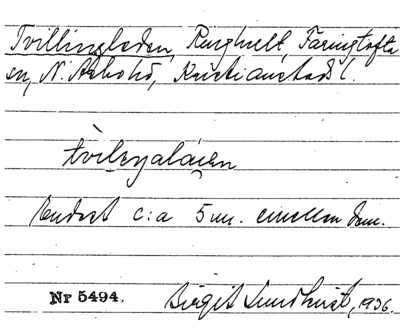 Tvillingleden, Rughult, Färingtofta
sn, N. Åsbohd, Kristianstads l.
Endast c:a 5 m. emellan dem.
Nr 5494. Birgit Lundkvist, 1936.